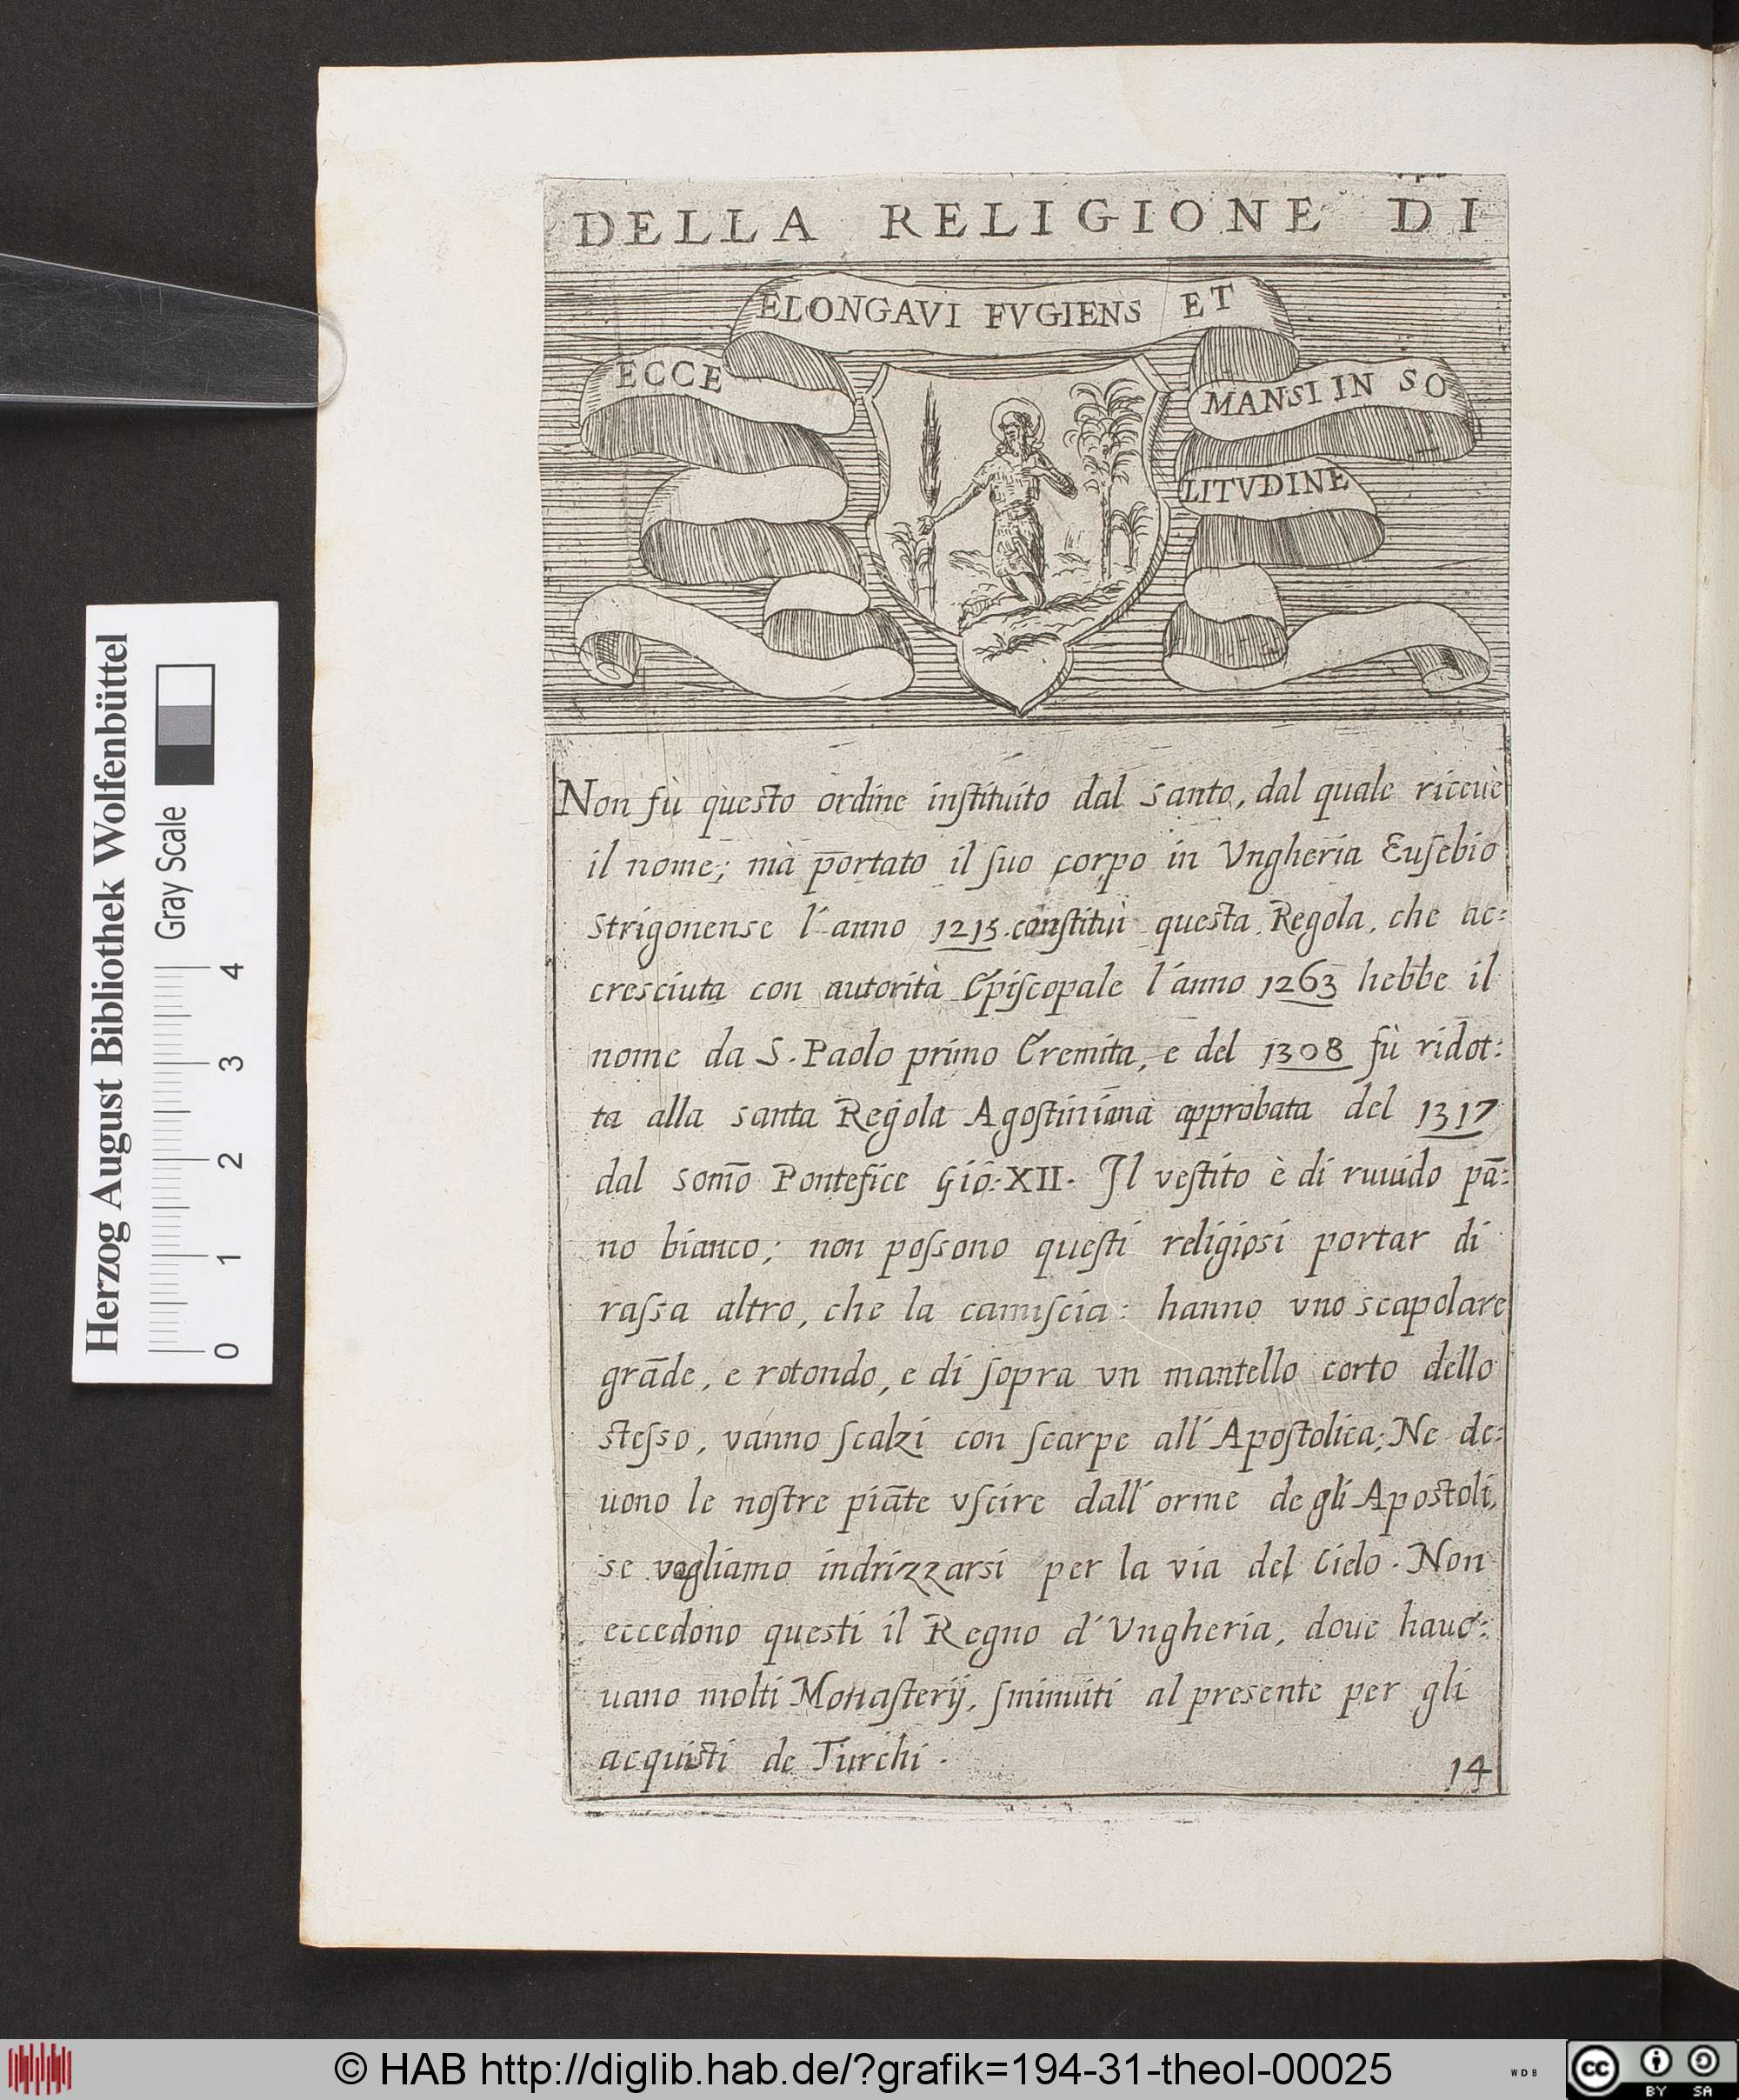 DELLA RELIGIONE DI
ECCE
ELONGAVI FVGIENS ET
MANSI IN SO
LITVDINE
Non fù questo ordine inſtituito dal santo, dal quale riceuè
il nome; mà portato il ſuo corpo in Vngheria Euſebio
strigonense l'anno 1215. conſtituì questa Regola, che ac:
cresciuta con autorità Epiſcopale l'anno 1263 hebbe il
nome da S. Paolo primo Eremita, e del 1308 fù ridot:
ta alla santa Regola Agoſtiniana approbata del 1317
dal som̄o Pontefice Giō: XII. Il veſtito è di ruuido pā:
no bianco; non poſsono queſti religiosi portar di
raſsa altro, che la camiſcia: hanno vno scapolare
grāde, e rotondo, e di ſopra vn mantello corto dello
steſso, vanno ſcalzi con ſcarpe all' Apoſtolica; Ne de:
uono le noſtre piāte vſcire dall' orme degli Apostoli,
se vogliamo indrizzarsi per la via del Cielo. Non
eccedono questi il Regno d'Vngheria, doue haue:
uano molti Monaſterij, ſminuiti al presente per gli
acquisti de Turchi.
14
Herzog August Bibliothek Wolfenbüttel
Gray Scale
0 1 2 3 4
© HAB http://diglib.hab.de/?grafik=194-31-theol-00025
WDB
cc
BY SA